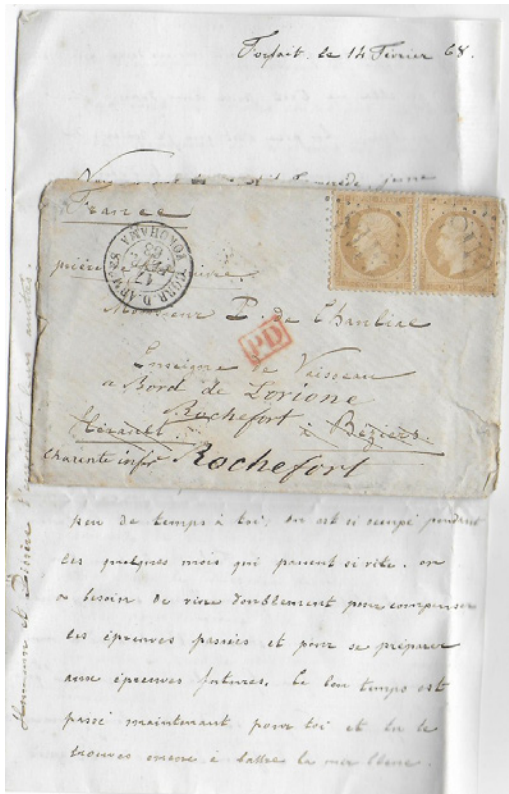 Forfait. le 14 Février 68.
France
YOKOHAMA
CORR. D. ARMÉES
17
68
PD
Monsieur P. de
Enseigne de Vaisseau
a Bord de Lorione
Rochefort
Hérault. à Béziers.
Charente infre Rochefort
peu de temps à toi, on est si occupé pendant
les quelques mois qui passent si vite. on
a besoin de vivre doublement pour compenser
les épreuves passées et pour se préparer
aux épreuves futures. Le bon temps est
passé maintenant pour toi et tu te
trouves encore à battre la mer bleue.